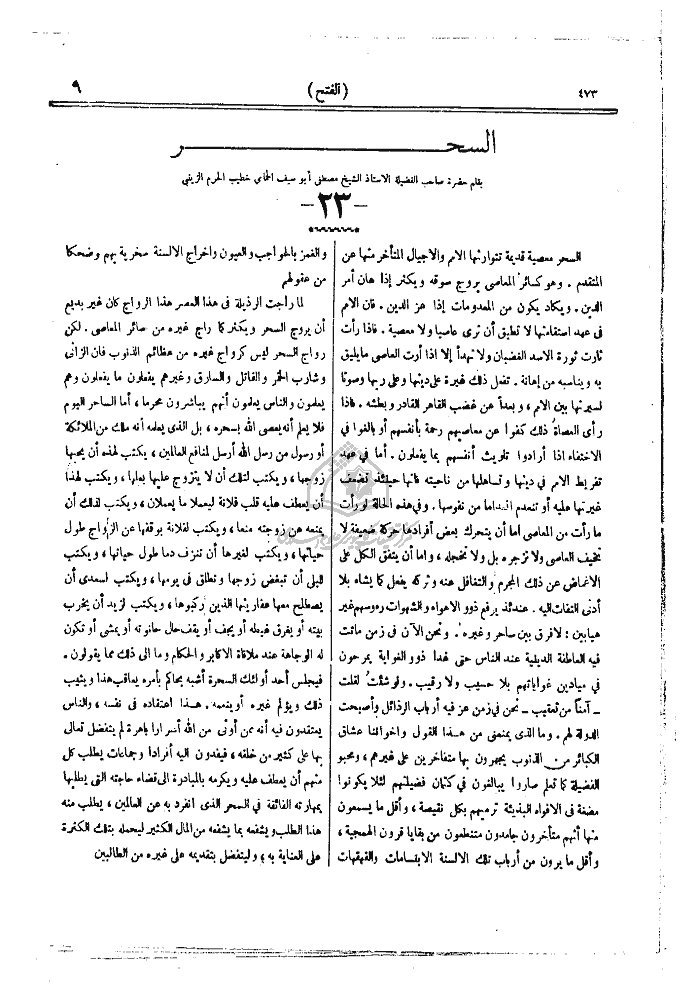 ٤٧٣
(الفتح)
٩
السحر
بقلم حضرة صاحب الفضيلة الاستاذ الشيخ مصطفى أبو سيف الحمامي خطيب الحرم الزينبي
-٢٣-
السحر معصية قديمة تتوارثها الامم والاجيال المتأخر منها عن
المتقدم . وهو كسائر المعاصي يروج سوقه ويكثر إذا هان أمر
الدين . ويكاد يكون من المعدومات إذا عز الدين . فان الامم
فى عهد استقامتها لا تطيق أن ترى عاصيا ولا معصية . فاذا رأت
ثارت ثورة الاسد الغضبان ولا تهدأ إلا اذا أرت العاصي مايليق
به ويناسبه من إهانة . تفعل ذلك غيرة على دينها وعلى ربها وصونا
لسيرتها بين الامم ، وبعداً عن غضب القاهر القادر وبطشه . فاذا
رأى العصاة ذلك كفوا عن معاصيهم رحمة بأنفسهم أو بالغوا في
الاختفاء اذا أرادوا تلويث أنفسهم بما يفعلون . أما في عهد
تفريط الامم في دينها وتساهلها من ناحيته فانها حينئذ تضعف
غيرتها عليه أو تنعدم انعداما من نفوسها . وفي هذه الحالة لو رأت
ما رأت من المعاصي اما أن يتحرك بعض أفرادها حركة ضعيفة لا
تخيف العاصي ولا تزجره بل ولا تخجله ، واما أن يتفق الكل على
الاغماض عن ذلك المجرم والتغافل عنه وتركه يفعل كما يشاء بلا
أدنى التفات اليه . عندئذ يرفع ذوو الاهواء والشهوات رءوسهم غير
هيابين : لا فرق بين ساحر وغيره . ونحن الآن فى زمن ماتت
فيه العاطفة الدينية عند الناس حتى غدا ذوو الغواية يمرحون
في ميادين غواياتهم بلا حسيب ولا رقيب . ولو شئتُ لقلت
ـ آمناً من تعقيب ـ نحن في زمن عز فيه أرباب الرذائل وأصبحت
الدولة لهم . وما الذى يمنعنى من هذا القول واخواننا عشاق
الكبائر من الذنوب يجهرون بها متفاخرين على غيرهم ، ومحبو
الفضيلة كما تعلم صاروا يبالغون في كتمان فضيلتهم لئلا يكونوا
مضغة فى الافواه البذيئة ترميهم بكل نقيصة ، وأقل ما يسمعون
منها أنهم متأخرون جامدون متنطعون من بقايا قرون الهمجية ،
وأقل ما يرون من أرباب تلك الالسنة الابتسامات والقهقهات
والغمز بالحواجب والعيون واخراج الالسنة سخرية بهم وضحكا
من عقولهم
لما راجت الرذيلة فى هذا العصر هذا الرواج كان غير بديع
أن يروج السحر ويكثر كما راج غيره من سائر المعاصي . لكن
رواج السحر ليس كرواج غيره من عظائم الذنوب فان الزانى
وشارب الخمر والقاتل والسارق وغيرهم يفعلون ما يفعلون وهم
يعلمون والناس يعلمون أنهم يباشرون محرما ، أما الساحر اليوم
فلا يعلم أنه يعصى الله بسحره ، بل الذى يعلمه أنه ملك من الملائكة
أو رسول من رسل الله أرسل لمنافع العالمين ، يكتب لهذه أن يحبها
زوجها ، ويكتب لتلك أن لا يتزوج عليها بعلها ، ويكتب لهذا
أن يعطف عليه قلب فلانة ليعملا ما يعملان ، ويكتب لذلك أن
يمنعه عن زوجته منعا ، ويكتب لفلانة بوقفها عن الزواج طول
حياتها ، ويكتب لغيرها أن تنزف دما طول حياتها ، ويكتب
لليلى أن تبغض زوجها وتطلق في يومها ، ويكتب لسعدى أن
يصطلح معها عفاريتها الذين ركبوها ، ويكتب لزيد أن يخرب
بيته أو يغرق غيطه أو يجف أو يقف حال حانوته أو يمشى أو تكون
له الوجاهة عند ملاقاة الاكابر والحكام وما الى ذلك مما يقولون .
فيجلس أحد أولئك السحرة أشبه بحاكم بأمره يعاقب هذا ويثيب
ذاك ويؤلم غيره أو ينعمه . هذا اعتقاده فى نفسه ، والناس
يعتقدون فيه أنه ممن أوتى من الله أسرارا باهرة لم يتفضل تعالى
بها على كثير من خلقه ، فيفدون اليه أفرادا وجماعات يطلب كل
منهم أن يعطف عليه ويكرمه بالمبادرة الى قضاء حاجته التى يطلبها
بمهارته الفائقة في السحر الذى انفرد به عن العالمين ، يطلب منه
هذا الطلب ويشفعه بما يشفعه من المال الكثير ليحمله بتلك الكثرة
على العناية به ، وليتفضل بتقديمه على غيره من الطالبين